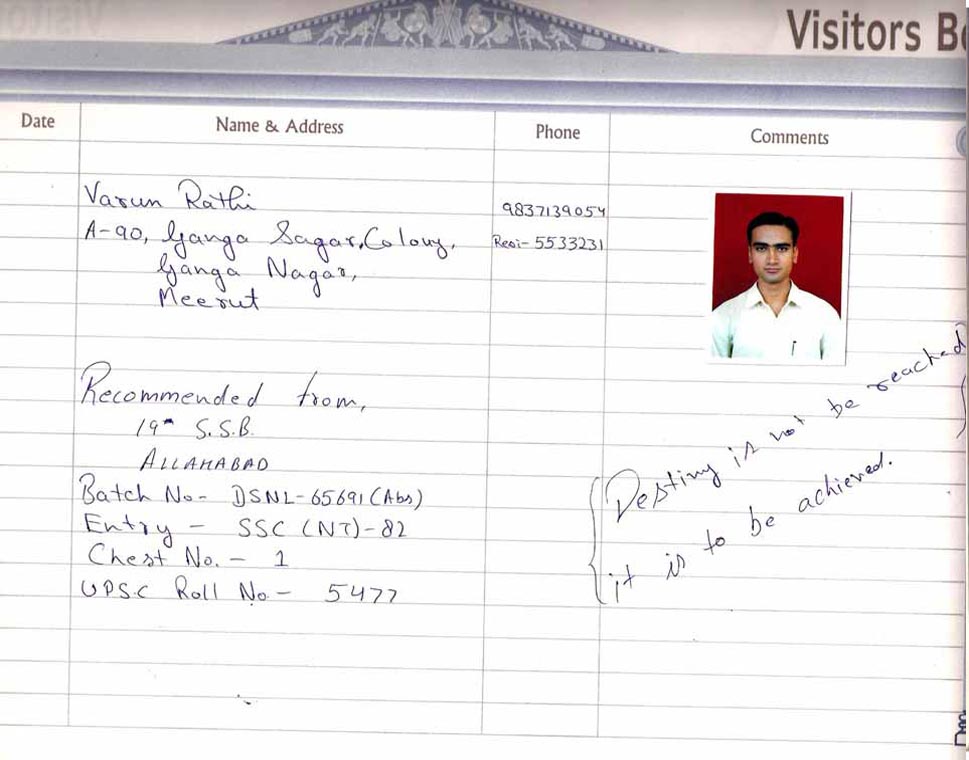 Visitors Bo
Date
Name & Address
Phone
Comments
Varun Rathi
A-90, Ganga Sagar, Colony,
Ganga Nagar,
Meerut
9837139054
Resi- 5533231
Recommended from,
19th S.S.B.
ALLAHABAD
Batch No- DSNL-65691 (Abs)
Entry - SSC (NT)-82
Chest No. - 1
UPSC Roll No - 5477
Destiny is not be reached
it is to be achieved.